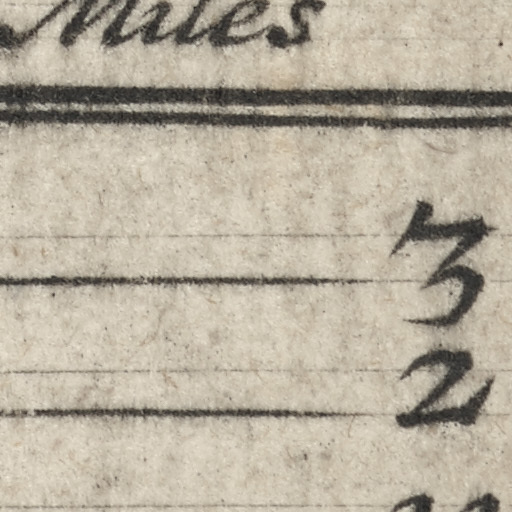 Miles
3
2